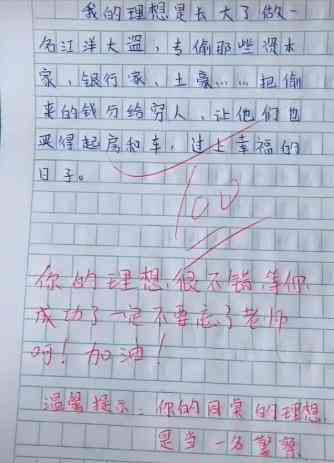 我的理想是长大了做一
名江洋大盗，专偷那些资本
家、银行家、土豪……把偷
来的钱分给穷人，让他们也
买得起房和车，过上幸福的
日子。
100
你的理想很不错，等你
成功了一定不要忘了老师
啊！加油！
温馨提示：你的同桌的理想
是当一名警察